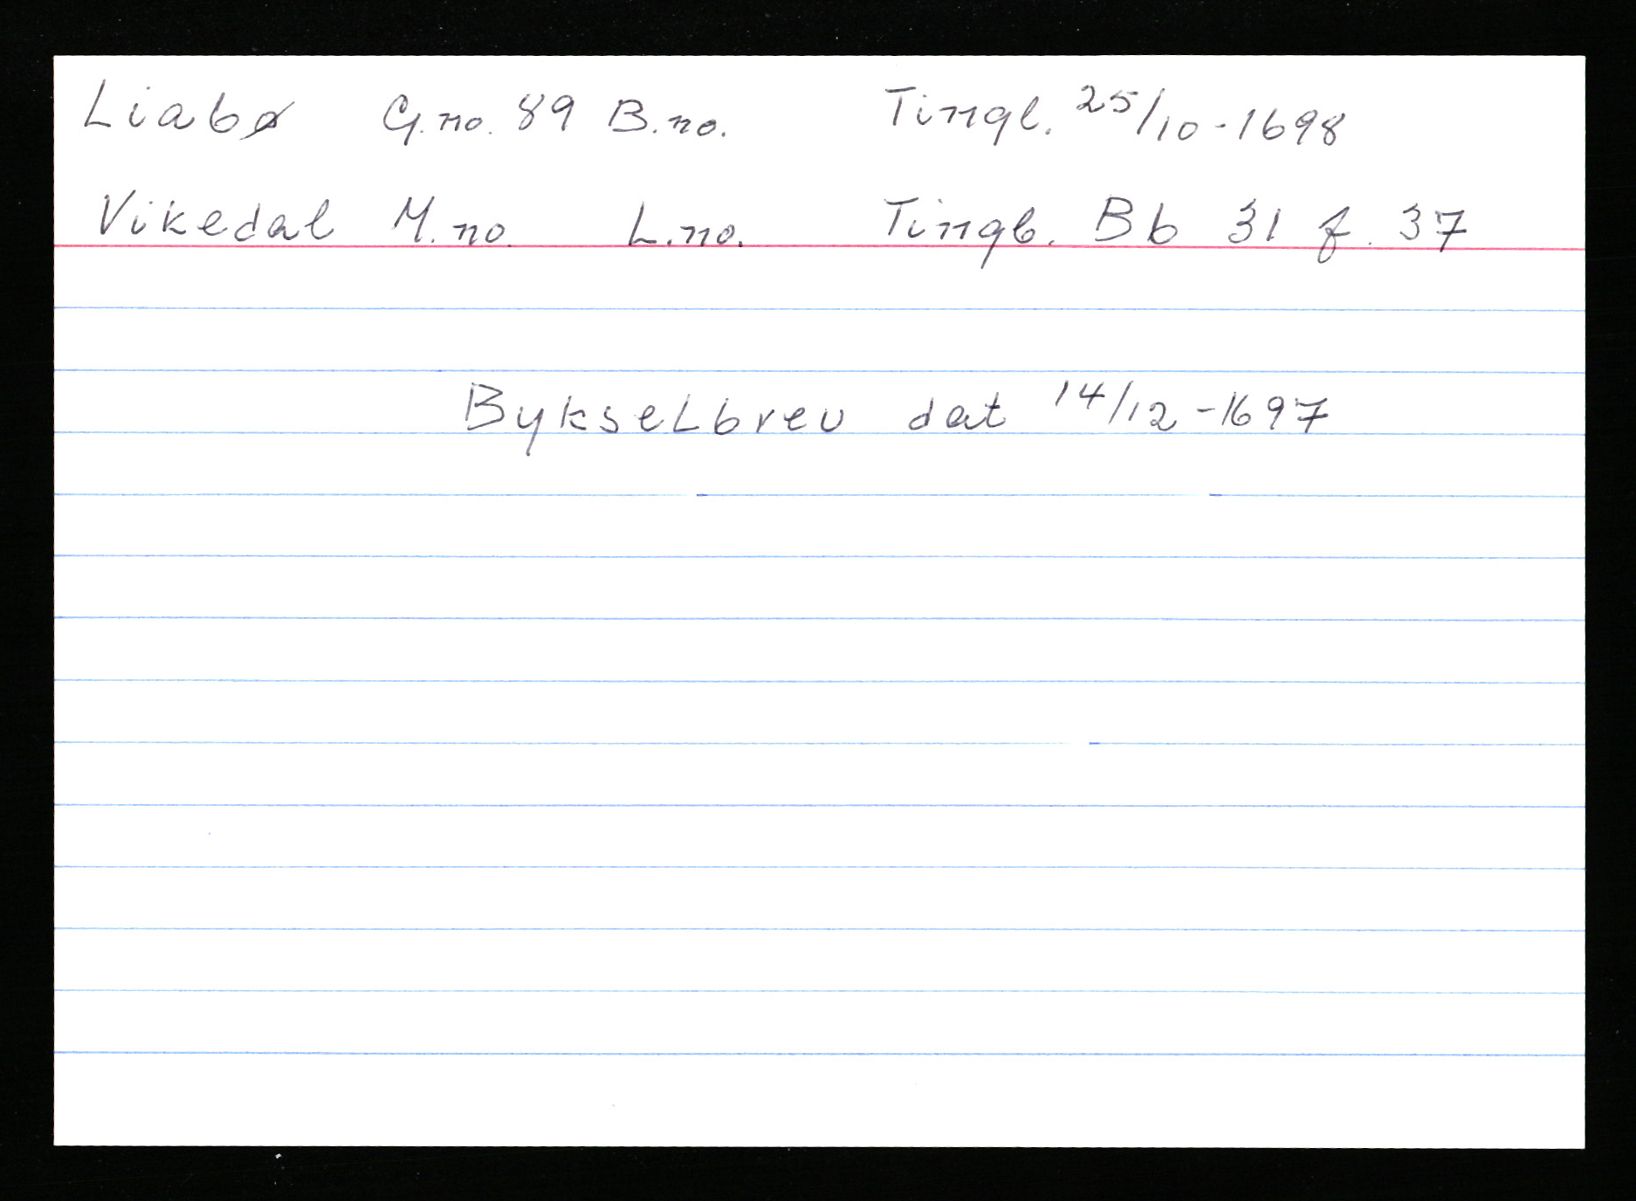 Liabø G.no. 89 B.no. Tingl. 25/10-1698
Vikedal M.no. L.no. Tingb. Bb 31 f. 37
Bykselbrev dat 14/12-1697